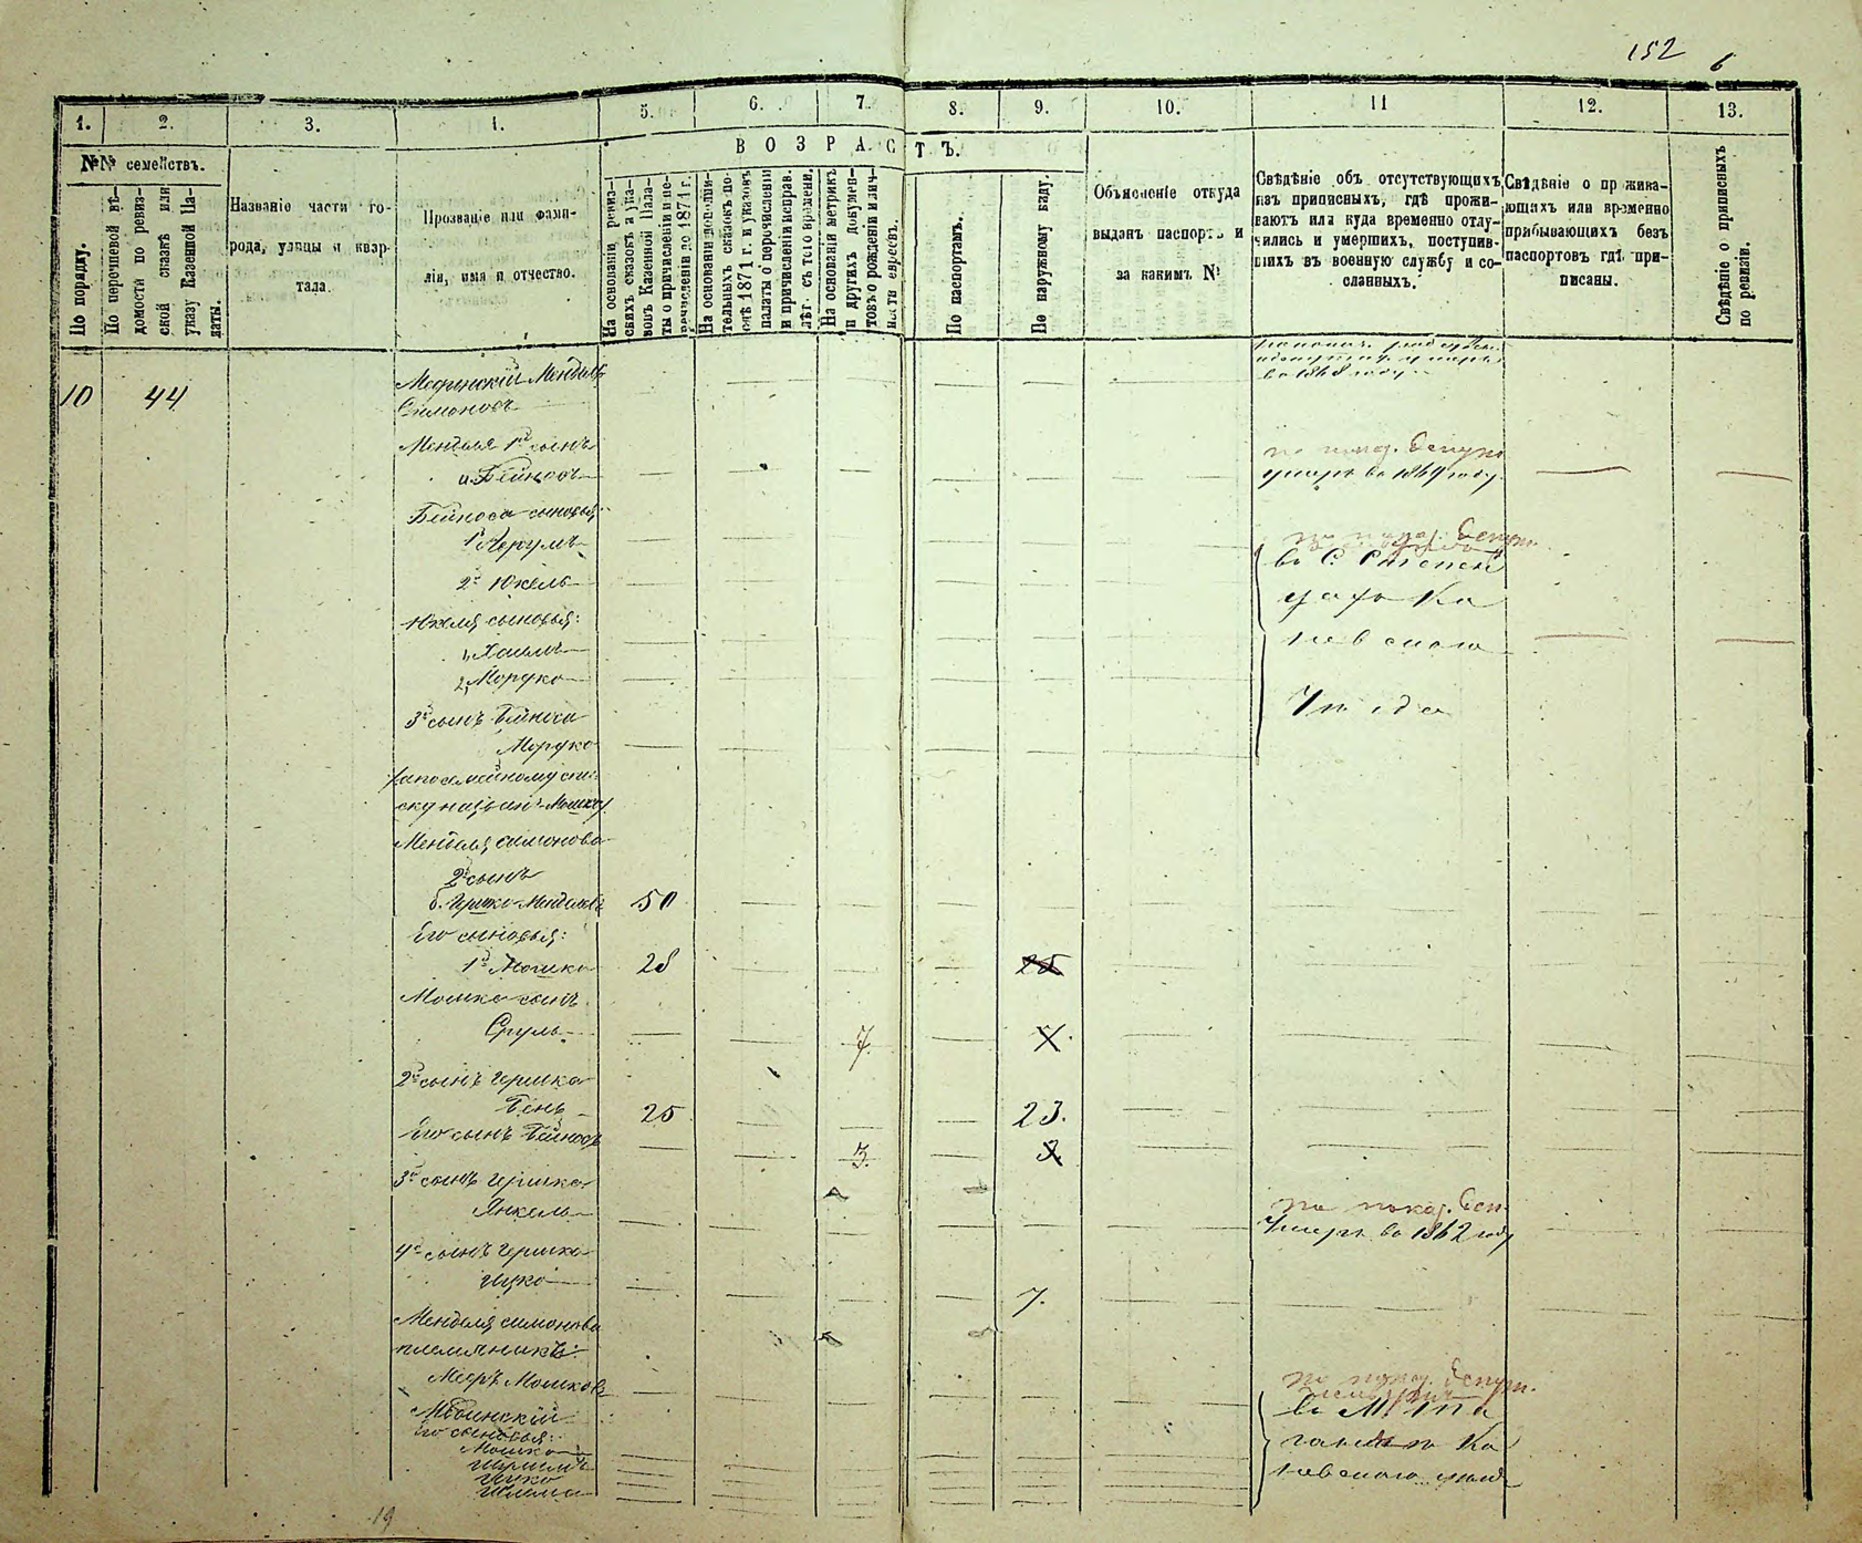 152
6
1.
2.
3.
4.
5.
6.
7.
8.
9.
10.
11
12.
13.
№№ семействъ.
ВОЗРАСТЪ.
По порядку.
По перечневой вѣ-
домости по ревиз-
ской сказкѣ или
указу Казенной Па-
латы.
Названіе части го-
рода, улицы и квар-
тала.
Прозваніе или фами-
лія, имя и отчество.
На основаніи ревиз-
скихъ сказокъ и ука-
зовъ Казенной Пала-
ты о причисленіи и пе-
речисленіи до 1871 г.
На основаніи дополни-
тельныхъ сказокъ по-
слѣ 1871 г. и указовъ
палаты о перечисленіи
и причисленіи исправ.
лѣт. съ того времени.
На основаніи метрикъ
и другихъ докумен-
товъ о рожденіи и лич-
ности евреевъ.
По паспортамъ.
По наружному виду.
Объясненіе откуда
выданъ паспортъ и
за какимъ №
Свѣдѣніе объ отсутствующихъ
изъ приписныхъ, гдѣ прожи-
ваютъ или куда временно отлу-
чились и умершихъ, поступив-
шихъ въ военную службу и со-
сланныхъ.
Свѣдѣніе о прожива-
ющихъ или временно
прибывающихъ безъ
паспортовъ гдѣ при-
писаны.
Свѣдѣніе о приписныхъ
по ревизіи.
10
44
Мендель
Симоновъ
во 1868 году
Менделя 1й сынъ
Бейносъ
умеръ во 1869 году
Бейноса сыновья:
1й
2й Юкель
во С. Степен
цахъ Ка
невского
Уѣзда
Юкеля сыновья:
1, Хаимъ
2, Мордко
3й сынъ Бейноса
Мордко
а по семейному спи-
ску назван. Мошко
Менделя Симонова
2й сынъ
б. Гершко Менделевъ
50
Его сыновья:
1й Мошко
28
Мошка сынъ
Сруль
7.
7.
2й сынъ Гершка
Бень
25
23.
Его сынъ Бейносъ
3.
3
3й сынъ Гершка
Янкель
по показ. Деп.
Умеръ во 1862 году
4й сынъ Гершка
Ицко
7.
Менделя Симонова
племянникъ:
Мееръ Мошковъ
Его сыновья:
Мошко
Ицко
Шлема
невского уезда
19